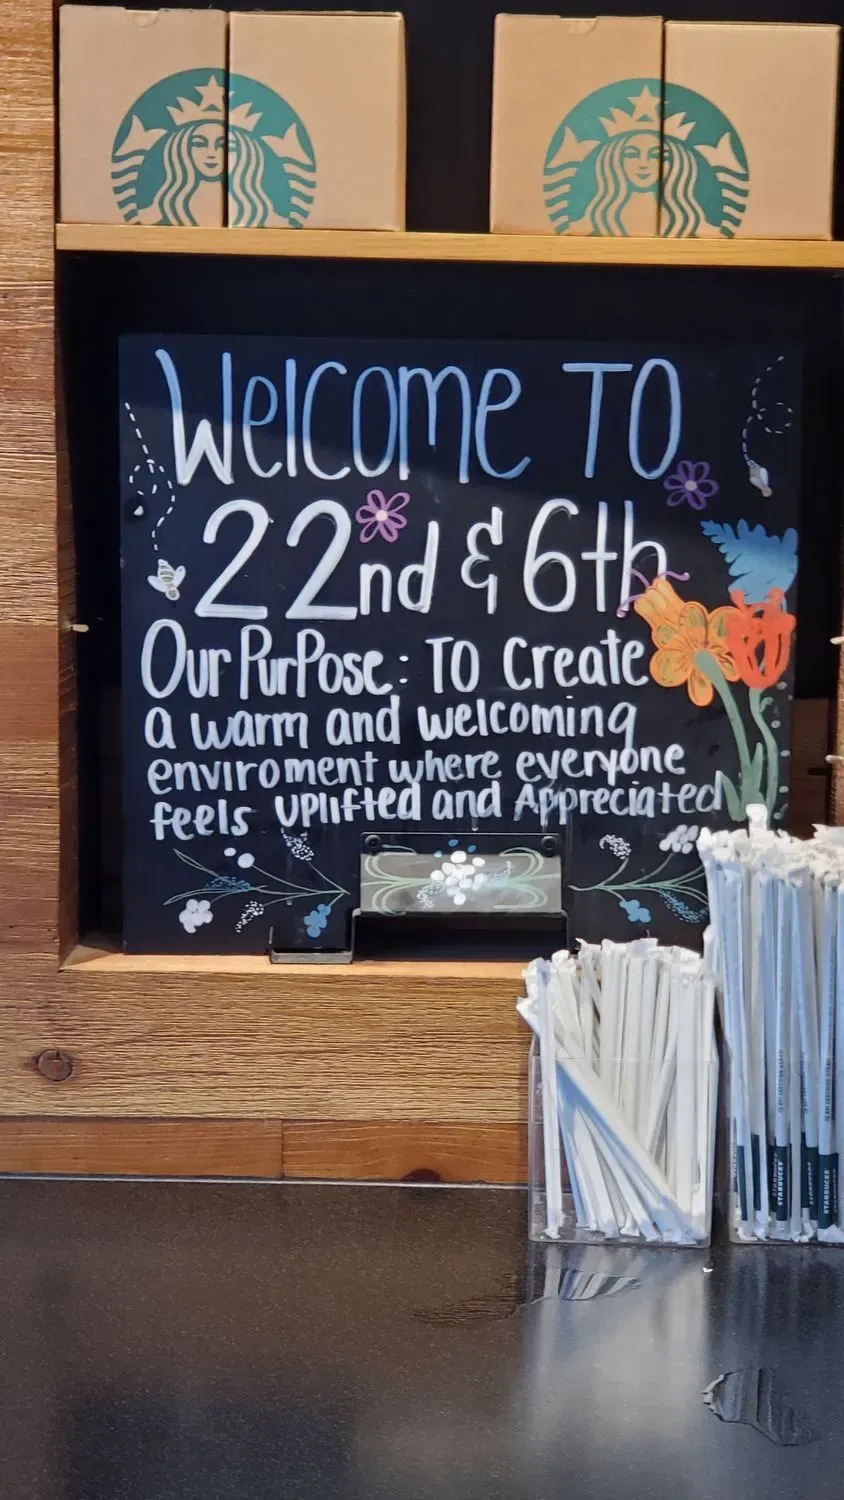 Welcome TO
22nd & 6th
Our Purpose: TO Create
a warm and welcoming
enviroment where everyone
feels uplifted and Appreciated
STARBUCKS